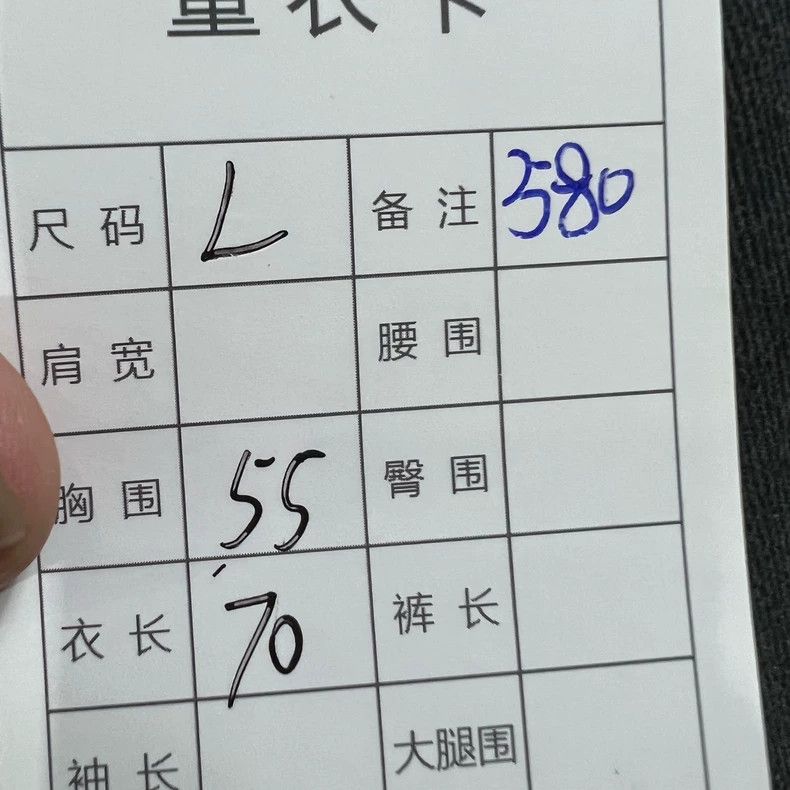 量衣卡
尺码 L 备注 580
肩宽 腰围
胸围 55 臀围
衣长 70 裤长
袖长 大腿围